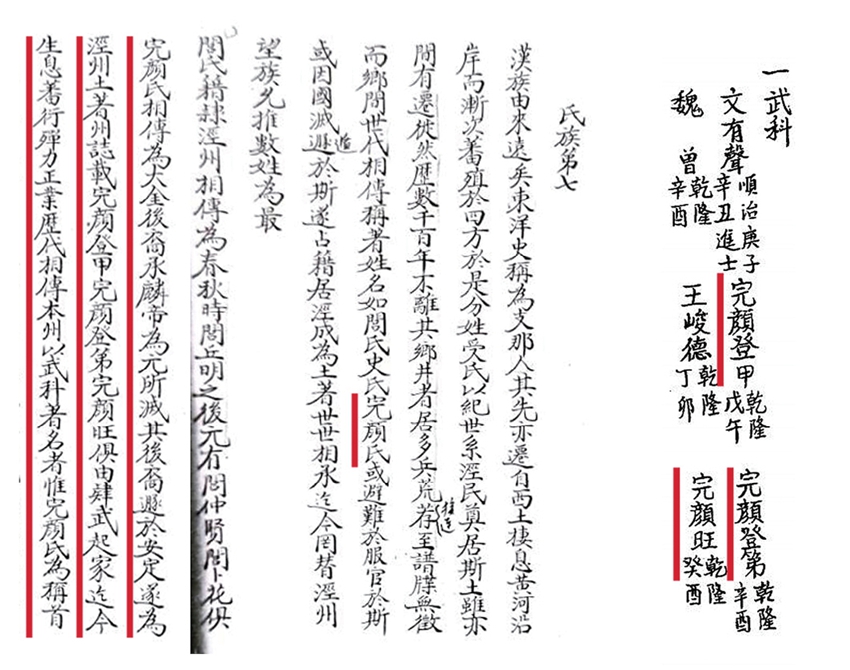 一武科
文有聲 順治庚子辛丑進士 完顔登甲 乾隆戊午 完顔登第 乾隆辛酉
魏 曾 乾隆辛酉 王峻德 乾隆丁卯 完顔旺 乾隆癸酉
氏族第七
漢族由來遠矣東洋史稱為支那人其先亦遷自西土棲息黃河沿
岸而漸次蕃殖於四方於是分姓受氏以紀世系涇民奠居斯土雖亦
間有遷徙然歷數千百年不離其鄉井者居多兵荒荐至譜牒無徵
而鄉間世代相傳稱者姓名如閭氏史氏完顔氏或避難於服官於斯
或因國滅遯於斯遂占籍居涇成為土著世世相承迄今罔替涇州
望族允推數姓為最
閭氏籍隸涇州相傳為春秋時閭丘明之後元有閭仲賢閭卜花俱
完顔氏相傳為大金後裔承麟帝為元所滅其後裔遯於安定遂為
涇州土著州誌載完顔登甲完顔登第完顔旺俱由肆武起家迄今
生息蕃衍殫力正業歷代相傳本州以武科者名者惟完顔氏為稱首